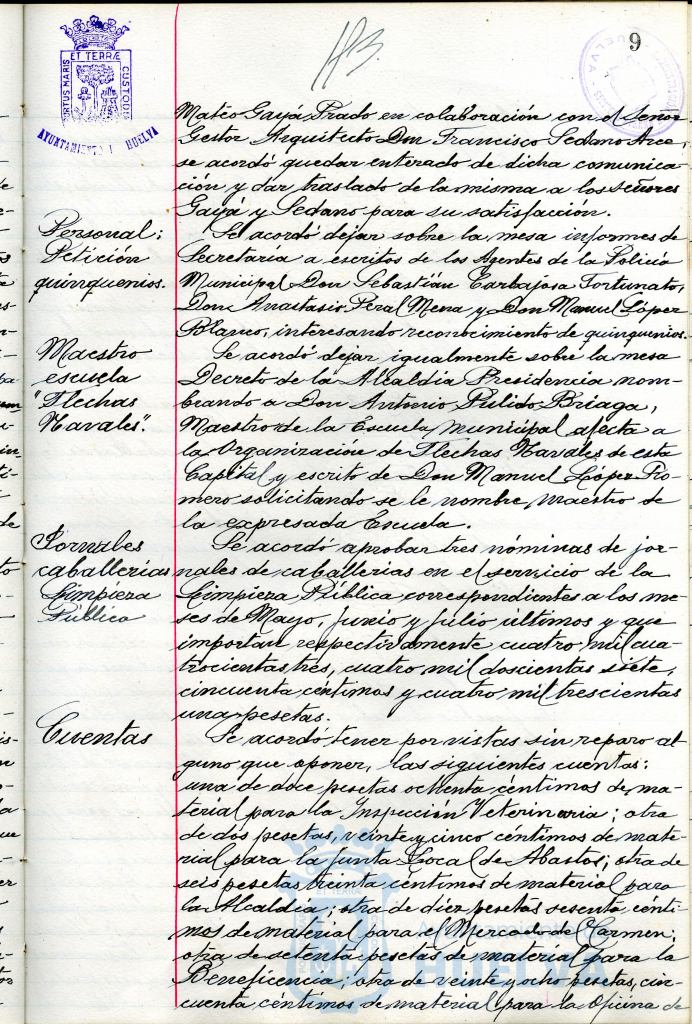 9
113.
ET TERRÆ
PORTUS MARIS
CUSTODIA
AYUNTAMIENTO HUELVA
HUELVA
Mateo Gayá Prado en colaboración con el Señor
Gestor Arquitecto Don Francisco Sedano Arce,
se acordó quedar enterado de dicha comunica-
ción y dar traslado de la misma a los señores
Gayá y Sedano para su satisfacción.
Personal:
Petición
quinquenios.
Se acordó dejar sobre la mesa informes de
Secretaria a escritos de los Agentes de la Policia
Municipal Don Sebastián Carbajosa Fortunato,
Don Anastasio Peral Mena y Don Manuel López
Blanco, interesando reconocimiento de quinquenios.
Maestro
escuela
"Flechas
Navales".
Se acordó dejar igualmente sobre la mesa
Decreto de la Alcaldía Presidencia nom-
brando a Don Antonio Pulido Briaga,
Maestro de la Escuela municipal afecta a
la Organización de Flechas Navales de esta
Capital y escrito de Don Manuel López Ro-
mero solicitando se le nombre maestro de
la expresada Escuela.
Jornales
caballerias
Limpieza
Pública
Se acordó aprobar tres nóminas de jor-
nales de caballerias en el servicio de la
Limpieza Pública correspondientes a los me-
ses de Mayo, Junio y Julio últimos y que
importan respectivamente cuatro mil cua-
trocientas tres, cuatro mil doscientas siete,
cincuenta céntimos y cuatro mil trescientas
una pesetas.
Cuentas
Se acordó tener por vistas sin reparo al-
guno que oponer, las siguientes cuentas:
una de doce pesetas ochenta céntimos de ma-
terial para la Inspección Veterinaria; otra
de dos pesetas, veinte y cinco céntimos de mate-
rial para la Junta Local de Abastos; otra de
seis pesetas treinta céntimos de material para
la Alcaldia; otra de diez pesetas sesenta cénti-
mos de material para el Mercado de Carmen;
otra de setenta pesetas de material para la
Beneficencia; otra de veinte y ocho pesetas, cin-
cuenta céntimos de material para la Oficina de
HUELVA